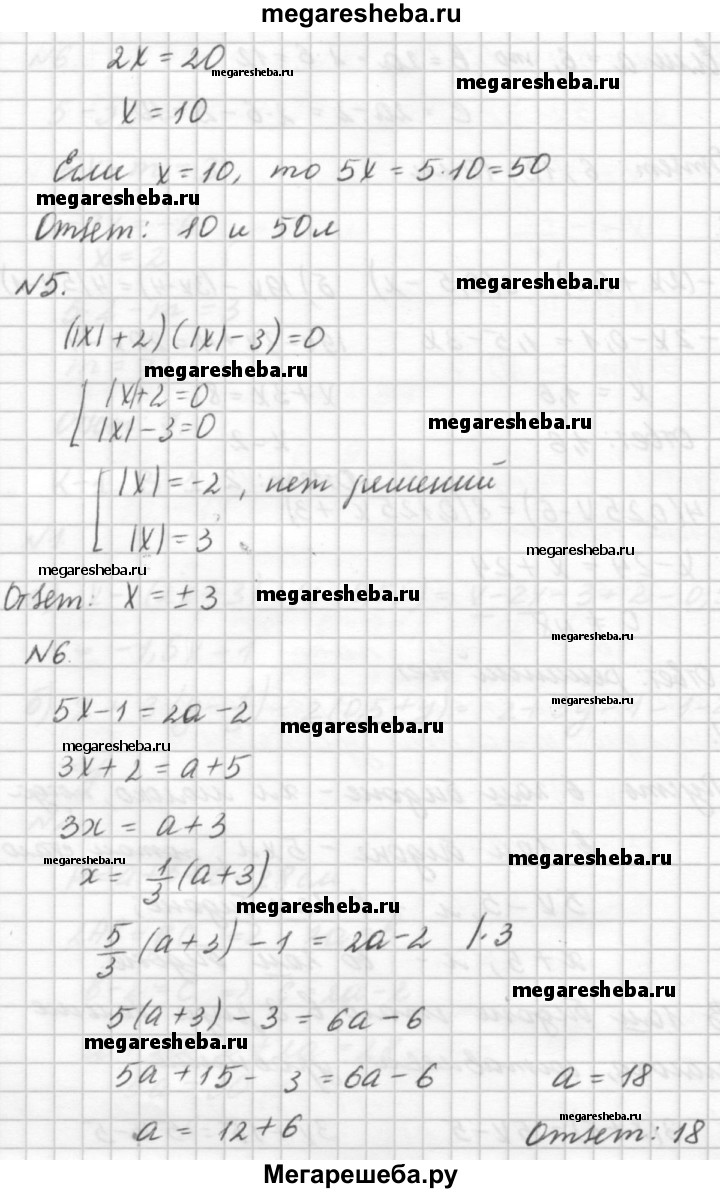 megaresheba.ru
2x = 20
megaresheba.ru
megaresheba.ru
x = 10
Если x = 10, то 5x = 5·10 = 50
megaresheba.ru
Ответ: 10 и 50л
N5.
megaresheba.ru
(|x| + 2)(|x| - 3) = 0
megaresheba.ru
|x| + 2 = 0
|x| - 3 = 0
megaresheba.ru
|x| = -2, нет решений
|x| = 3
megaresheba.ru
megaresheba.ru
Ответ: x = ± 3
megaresheba.ru
megaresheba.ru
N6.
5x - 1 = 2a - 2
megaresheba.ru
megaresheba.ru
megaresheba.ru
3x + 2 = a + 5
3x = a + 3
megaresheba.ru
megaresheba.ru
x = 1/3 (a + 3)
megaresheba.ru
5/3 (a + 3) - 1 = 2a - 2 |·3
megaresheba.ru
5(a + 3) - 3 = 6a - 6
megaresheba.ru
5a + 15 - 3 = 6a - 6 a = 18
megaresheba.ru
a = 12 + 6 Ответ: 18
Мегарешеба.ру